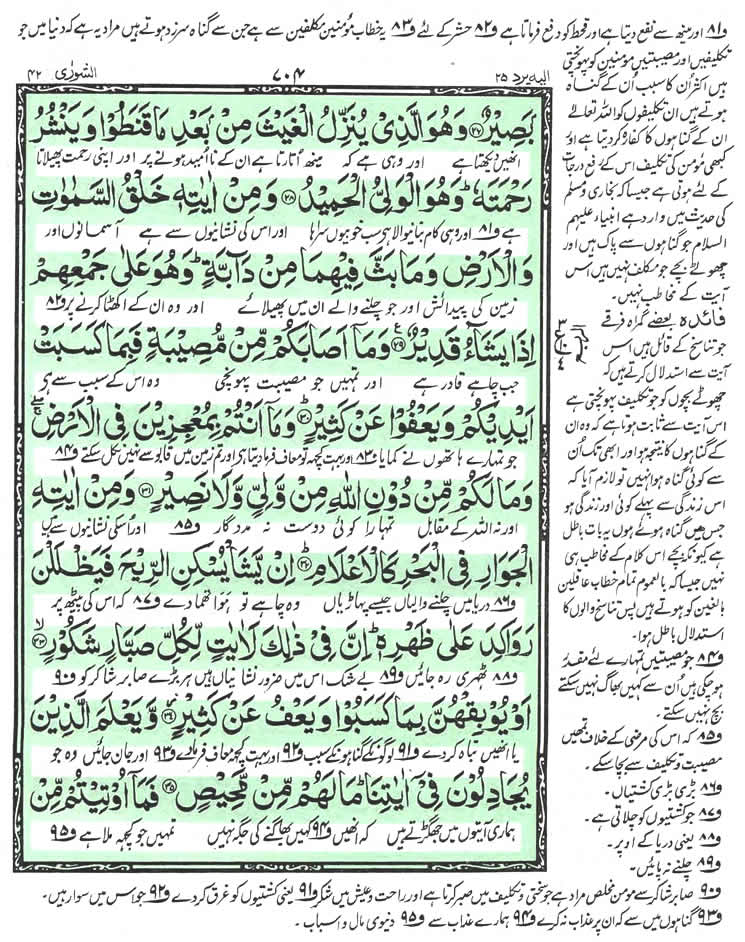 و۸۱ اور مینھ سے نفع دیتا ہے اور قحط کو دفع فرماتا ہے و۸۲ حشر کے لئے و۸۳ یہ خطاب مومنین مکلفین سے ہے جن سے گناہ سرزد ہوتے ہیں مراد یہ ہے کہ دنیا میں جو
الشورٰی ۴۲
۷۰۴
الیہ یرد ۲۵
بَصِيْرٌ ۲۷ وَهُوَ الَّذِيْ يُنَزِّلُ الْغَيْثَ مِنْۢ بَعْدِ مَا قَنَطُوْا وَيَنْشُرُ
انھیں دیکھتا ہے اور وہی ہے کہ مینھ اتارتا ہے ان کے ناامید ہونے پر اور اپنی رحمت پھیلاتا
رَحْمَتَهٗ ؕ وَهُوَ الْوَلِيُّ الْحَمِيْدُ ۲۸ وَمِنْ اٰيٰتِهٖ خَلْقُ السَّمٰوٰتِ
ہے و۸۱ اور وہی کام بنانیوالا ہے سب خوبیوں سراہا اور اس کی نشانیوں سے ہے آسمانوں اور
وَالْاَرْضِ وَمَا بَثَّ فِيْهِمَا مِنْ دَآبَّةٍ ؕ وَهُوَ عَلٰى جَمْعِهِمْ
زمین کی پیدائش اور جو چلنے والے ان میں پھیلائے اور وہ ان کے اکھٹا کرنے پر و۸۲
اِذَا يَشَآءُ قَدِيْرٌ ۲۹ وَمَآ اَصَابَكُمْ مِّنْ مُّصِيْبَةٍ فَبِمَا كَسَبَتْ
جب چاہے قادر ہے اور تمہیں جو مصیبت پہونچی وہ اس کے سبب سے ہے
اَيْدِيْكُمْ وَيَعْفُوْا عَنْ كَثِيْرٍ ۳۰ وَمَآ اَنْتُمْ بِمُعْجِزِيْنَ فِي الْاَرْضِ
جو تمہارے ہاتھوں نے کمایا و۸۳ اور بہت کچھ تو معاف فرما دیتا ہے اور تم زمین میں قابو سے نہیں نکل سکتے و۸۴
وَمَا لَكُمْ مِّنْ دُوْنِ اللّٰهِ مِنْ وَّلِيٍّ وَّلَا نَصِيْرٍ ۳۱ وَمِنْ اٰيٰتِهِ
اور نہ اللہ کے مقابل تمہارا کوئی دوست نہ مددگار و۸۵ اور اس کی نشانیوں سے ہیں
الْجَوَارِ فِي الْبَحْرِ كَالْاَعْلَامِ ۳۲ اِنْ يَّشَاْ يُسْكِنِ الرِّيْحَ فَيَظْلَلْنَ
و۸۶ دریا میں چلنے والیاں جیسے پہاڑیاں وہ چاہے تو ہوا تھما دے و۸۷ کہ اس کی پیٹھ پر
رَوَاكِدَ عَلٰى ظَهْرِهٖ ؕ اِنَّ فِيْ ذٰلِكَ لَاٰيٰتٍ لِّكُلِّ صَبَّارٍ شَكُوْرٍ ۳۳
و۸۸ ٹھہری رہ جائیں و۸۹ بے شک اس میں ضرور نشانیاں ہیں ہر بڑے صابر شاکر کو و۹۰
اَوْ يُوْبِقْهُنَّ بِمَا كَسَبُوْا وَيَعْفُ عَنْ كَثِيْرٍ ۳۴ وَّيَعْلَمَ الَّذِيْنَ
یا انھیں تباہ کر دے و۹۱ لوگوں کے گناہوں کے سبب و۹۲ اور بہت کچھ معاف فرما دے و۹۳ اور جان جائیں وہ جو
يُجَادِلُوْنَ فِيْٓ اٰيٰتِنَا ؕ مَا لَهُمْ مِّنْ مَّحِيْصٍ ۳۵ فَمَآ اُوْتِيْتُمْ مِّنْ
ہماری آیتوں میں جھگڑتے ہیں کہ انھیں و۹۴ کہیں بھاگنے کی جگہ نہیں تمہیں جو کچھ ملا ہے و۹۵
تکلیفیں اور مصیبتیں مومنین کو پہونچتی
ہیں اکثر ان کا سبب اُن کے گناہ
ہوتے ہیں ان تکلیفوں کو اللہ تعالٰی
ان کے گناہوں کا کفارہ کر دیتا ہے اور
کبھی مومن کی تکلیف اس کے رفع درجات
کے لئے ہوتی ہے جیسا کہ بخاری و مسلم
کی حدیث میں وارد ہے انبیاء علیہم
السلام جو گناہوں سے پاک ہیں اور
چھوٹے بچے جو مکلف نہیں ہیں اس
آیت کے مخاطب نہیں۔
فائدہ بعضے گمراہ فرقے
جو تناسخ کے قائل ہیں اس
آیت سے استدلال کرتے ہیں کہ
چھوٹے بچوں کو جو تکلیف پہونچتی ہے
اس آیت سے ثابت ہوتا ہے کہ وہ ان
کے گناہوں کا نتیجہ ہو اور ابھی تک اُن
سے کوئی گناہ ہوا نہیں تو لازم آیا کہ
اس زندگی سے پہلے کوئی اور زندگی ہو
جس میں گناہ ہوئے ہوں یہ بات باطل
ہے کیونکہ بچے اس کلام کے مخاطب ہی
نہیں جیسا کہ بالعموم تمام خطاب عاقلین
بالغین کو ہوتے ہیں پس تناسخ والوں کا
استدلال باطل ہوا۔
و۸۴ جو مصیبتیں تمہارے لئے مقدر
ہو چکی ہیں اُن سے کہیں بھاگ نہیں سکتے
بچ نہیں سکتے۔
و۸۵ کہ اس کی مرضی کے خلاف تمھیں
مصیبت و تکلیف سے بچا سکے۔
و۸۶ بڑی بڑی کشتیاں۔
و۸۷ جو کشتیوں کو چلاتی ہے۔
و۸۸ یعنی دریا کے اوپر۔
و۸۹ چلنے نہ پائیں۔
و۹۰ صابر شاکر سے مومن مخلص مراد ہے جو سختی و تکلیف میں صبر کرتا ہے اور راحت و عیش میں شکر و۹۱ یعنی کشتیوں کو غرق کر دے و۹۲ جو اس میں سوار ہیں۔
و۹۳ گناہوں میں سے کہ ان پر عذاب نہ کرے و۹۴ ہمارے عذاب سے و۹۵ دنیوی مال و اسباب۔